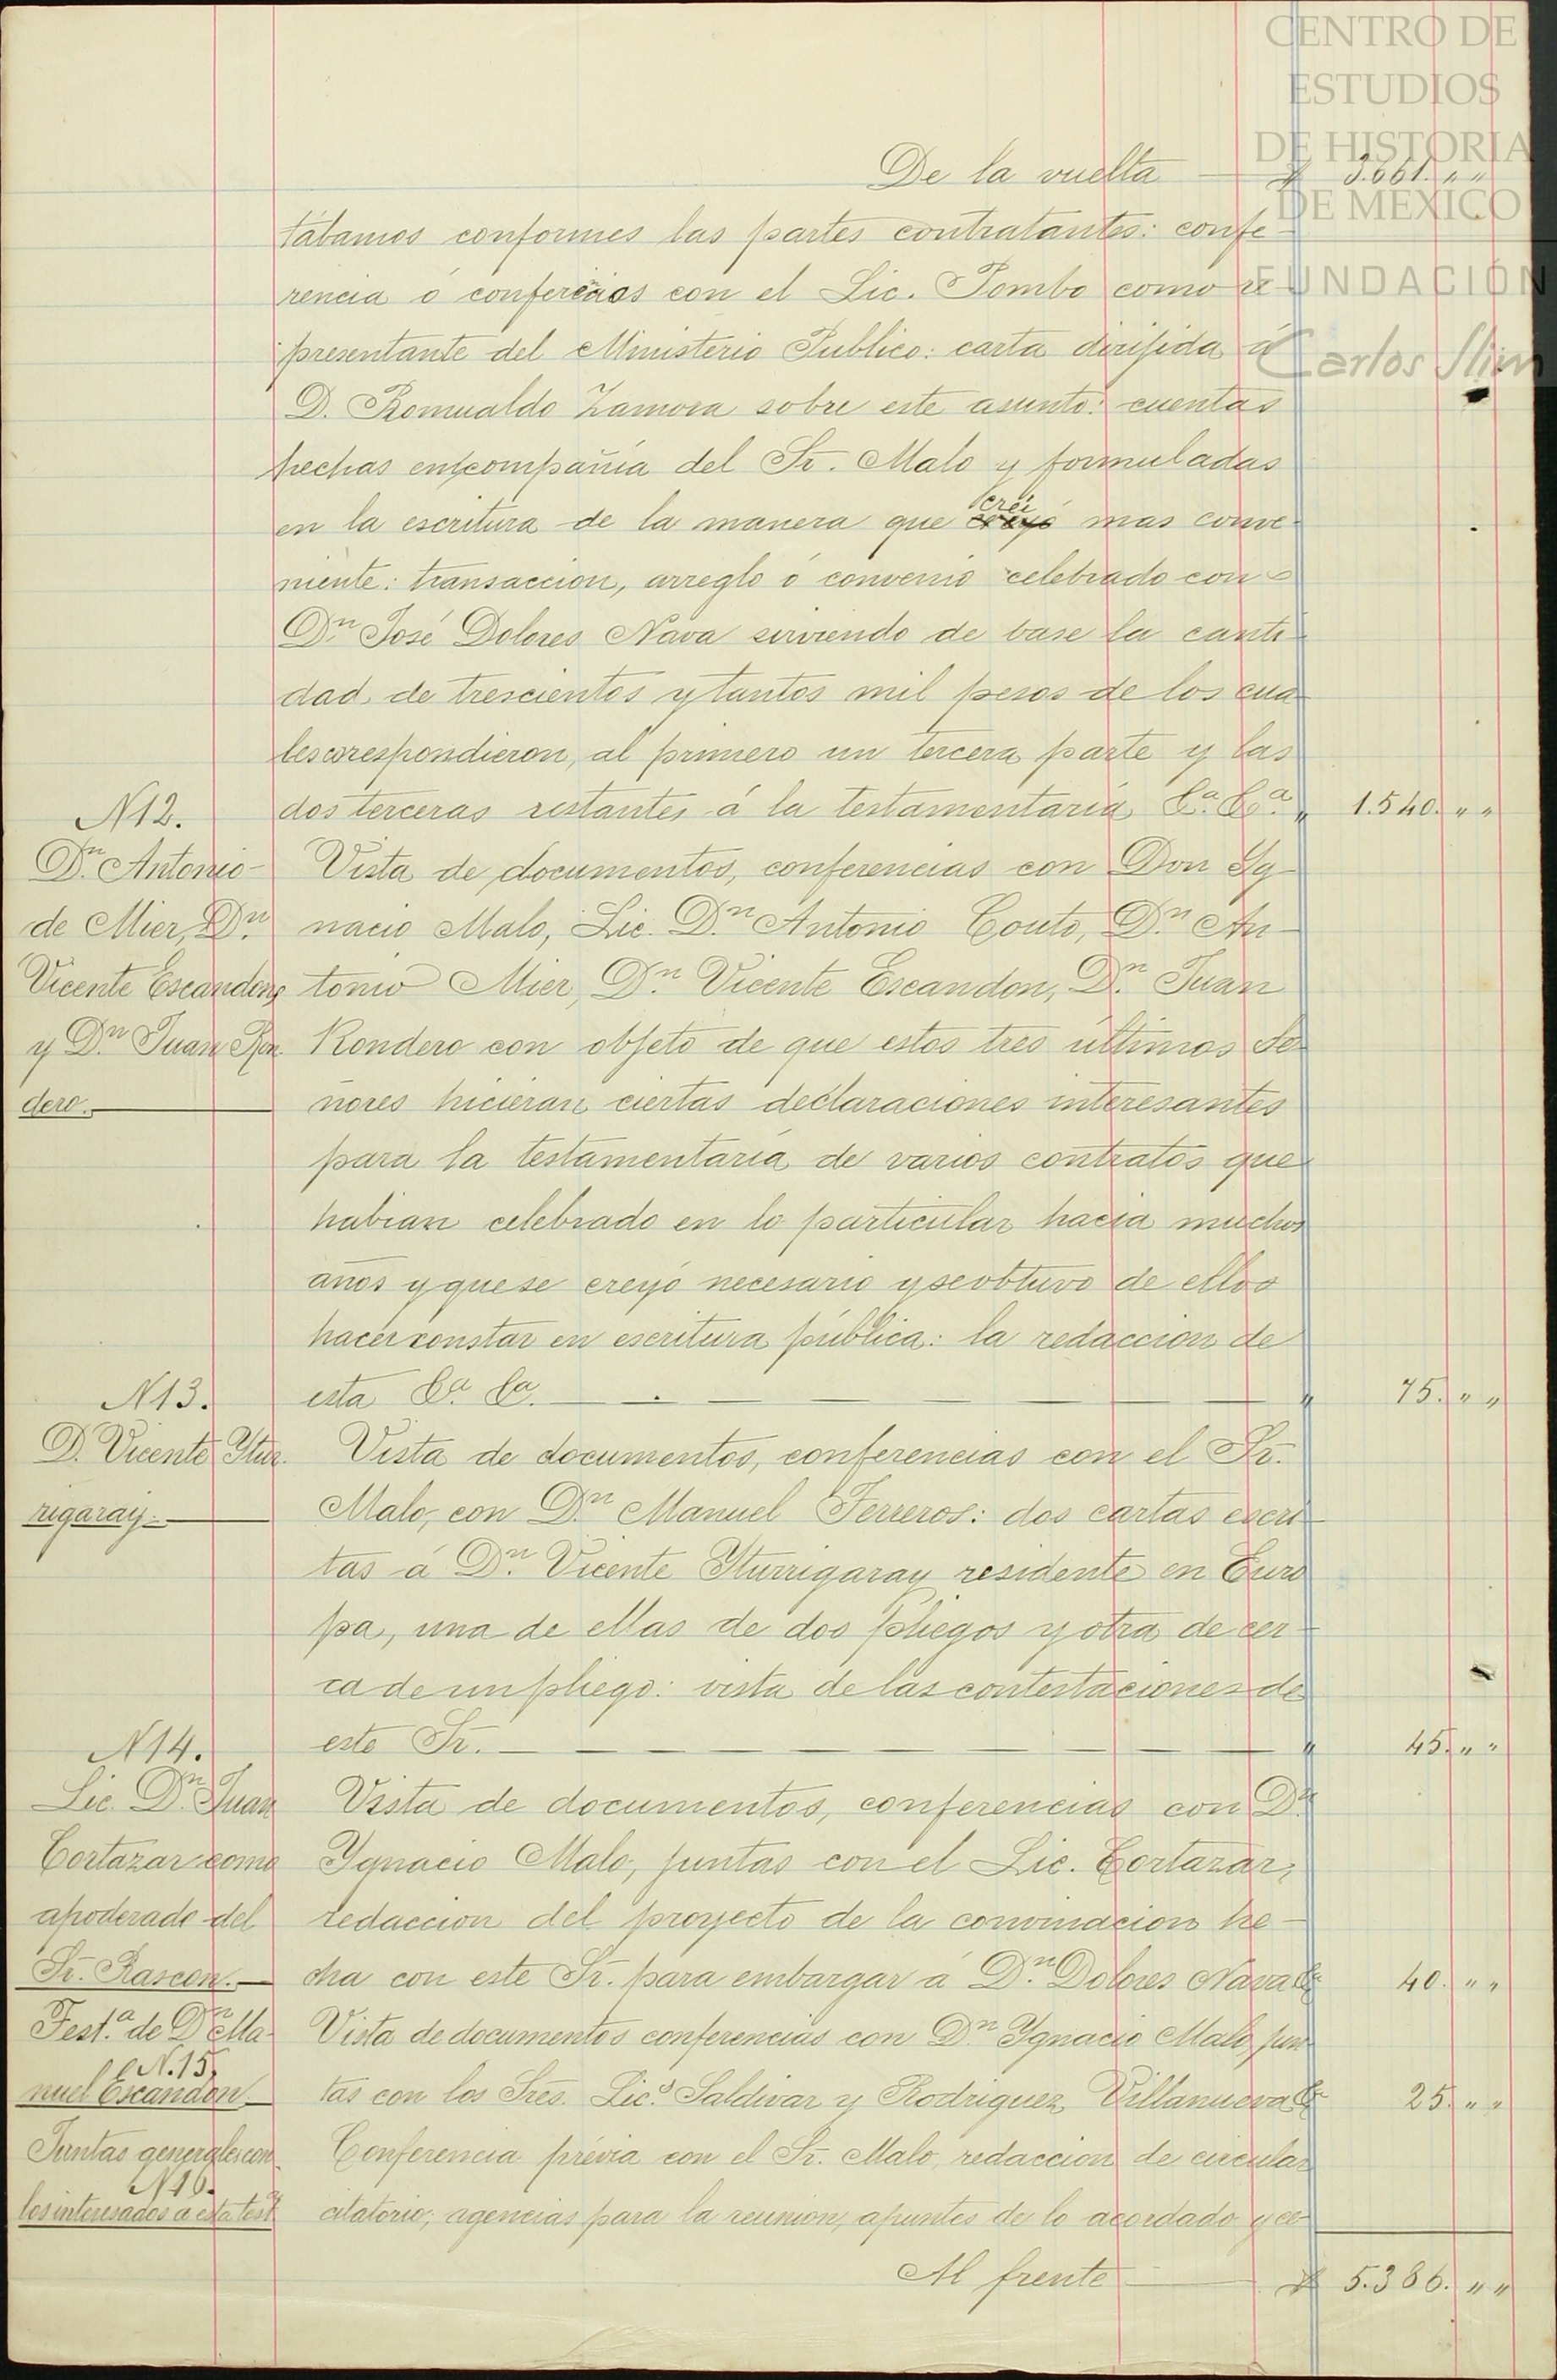 CENTRO DE
ESTUDIOS
DE HISTORIA
DE MEXICO
FUNDACIÓN
Carlos Slim
De la vuelta $ 3.661. " "
tábamos conformes las partes contratantes: confe-
rencia ó conferecias con el Lic. Pombo como re-
presentante del Ministerio Publico: carta dirijida á
D. Romualdo Zamora sobre este asunto: cuentas
hechas en compañia del Sr. Malo y formuladas
en la escritura de la manera que creí mas conve-
niente: transaccion, arreglo ó convenio celebrado con
Dn. José Dolores Nava sirviendo de base la canti-
dad de trescientos y tantos mil pesos de los cua-
les corespondieron, al primero un tercera parte y las
dos terceras restantes á la testamentaria &a. &a. " 1.540. " "
N 12.
Dn. Antonio
de Mier, Dn.
Vicente Escandon,
y Dn Juan Ron-
dero.
Vista de documentos, conferencias con Don Yg-
nacio Malo, Lic. Dn. Antonio Couto, Dn. An-
tonio Mier, Dn. Vicente Escandon, Dn. Juan
Rondero con objeto de que estos tres últimos Se-
ñores hicieran ciertas declaraciones interesantes
para la testamentaria de varios contratos que
habian celebrado en lo particular hacia muchos
años y que se creyó necesario y se obtuvo de ellos
hacer constar en escritura pública: la redaccion de
esta &a. &a. " 75. " "
N 13.
D. Vicente Ytur-
rigaray.
Vista de documentos, conferencias con el Sr.
Malo, con Dn. Manuel Ferreros: dos cartas escri-
tas á Dn. Vicente Yturrigaray residente en Euro
pa, una de ellas de dos pliegos y otra de cer-
ca de un pliego: vista de las contestaciones de
este Sr. " 45. " "
N 14.
Lic. Dn. Juan
Cortazar como
apoderado del
Sr. Rascon.
Vista de documentos, conferencias con Dn.
Ygnacio Malo, juntas con el Lic. Cortazar,
redaccion del proyecto de la convinacion he-
cha con este Sr. para embargar á Dn. Dolores Nava & 40. " "
Test.a de Dn Ma-
N. 15.
nuel Escandon.
Vista de documentos conferencias con Dn. Ygnacio Malo, jun-
tas con los Sres. Lics. Saldivar y Rodriguez Villanueva & 25. " "
Juntas generales con
N 16.
los interesados á esta test.a
Conferencia prévia con el Sr. Malo, redaccion de circular
citatorio; agencias para la reunion, apuntes de lo acordado y ce-
Al frente $ 5.386. " "